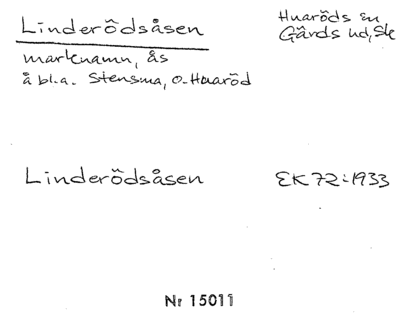 Linderödsåsen
Huaröds sn
Gärds hd, Sk
marknamn, ås
å bl.a. Stensma, o. Huaröd
Linderödsåsen
EK 72:-1933
Nr 15011